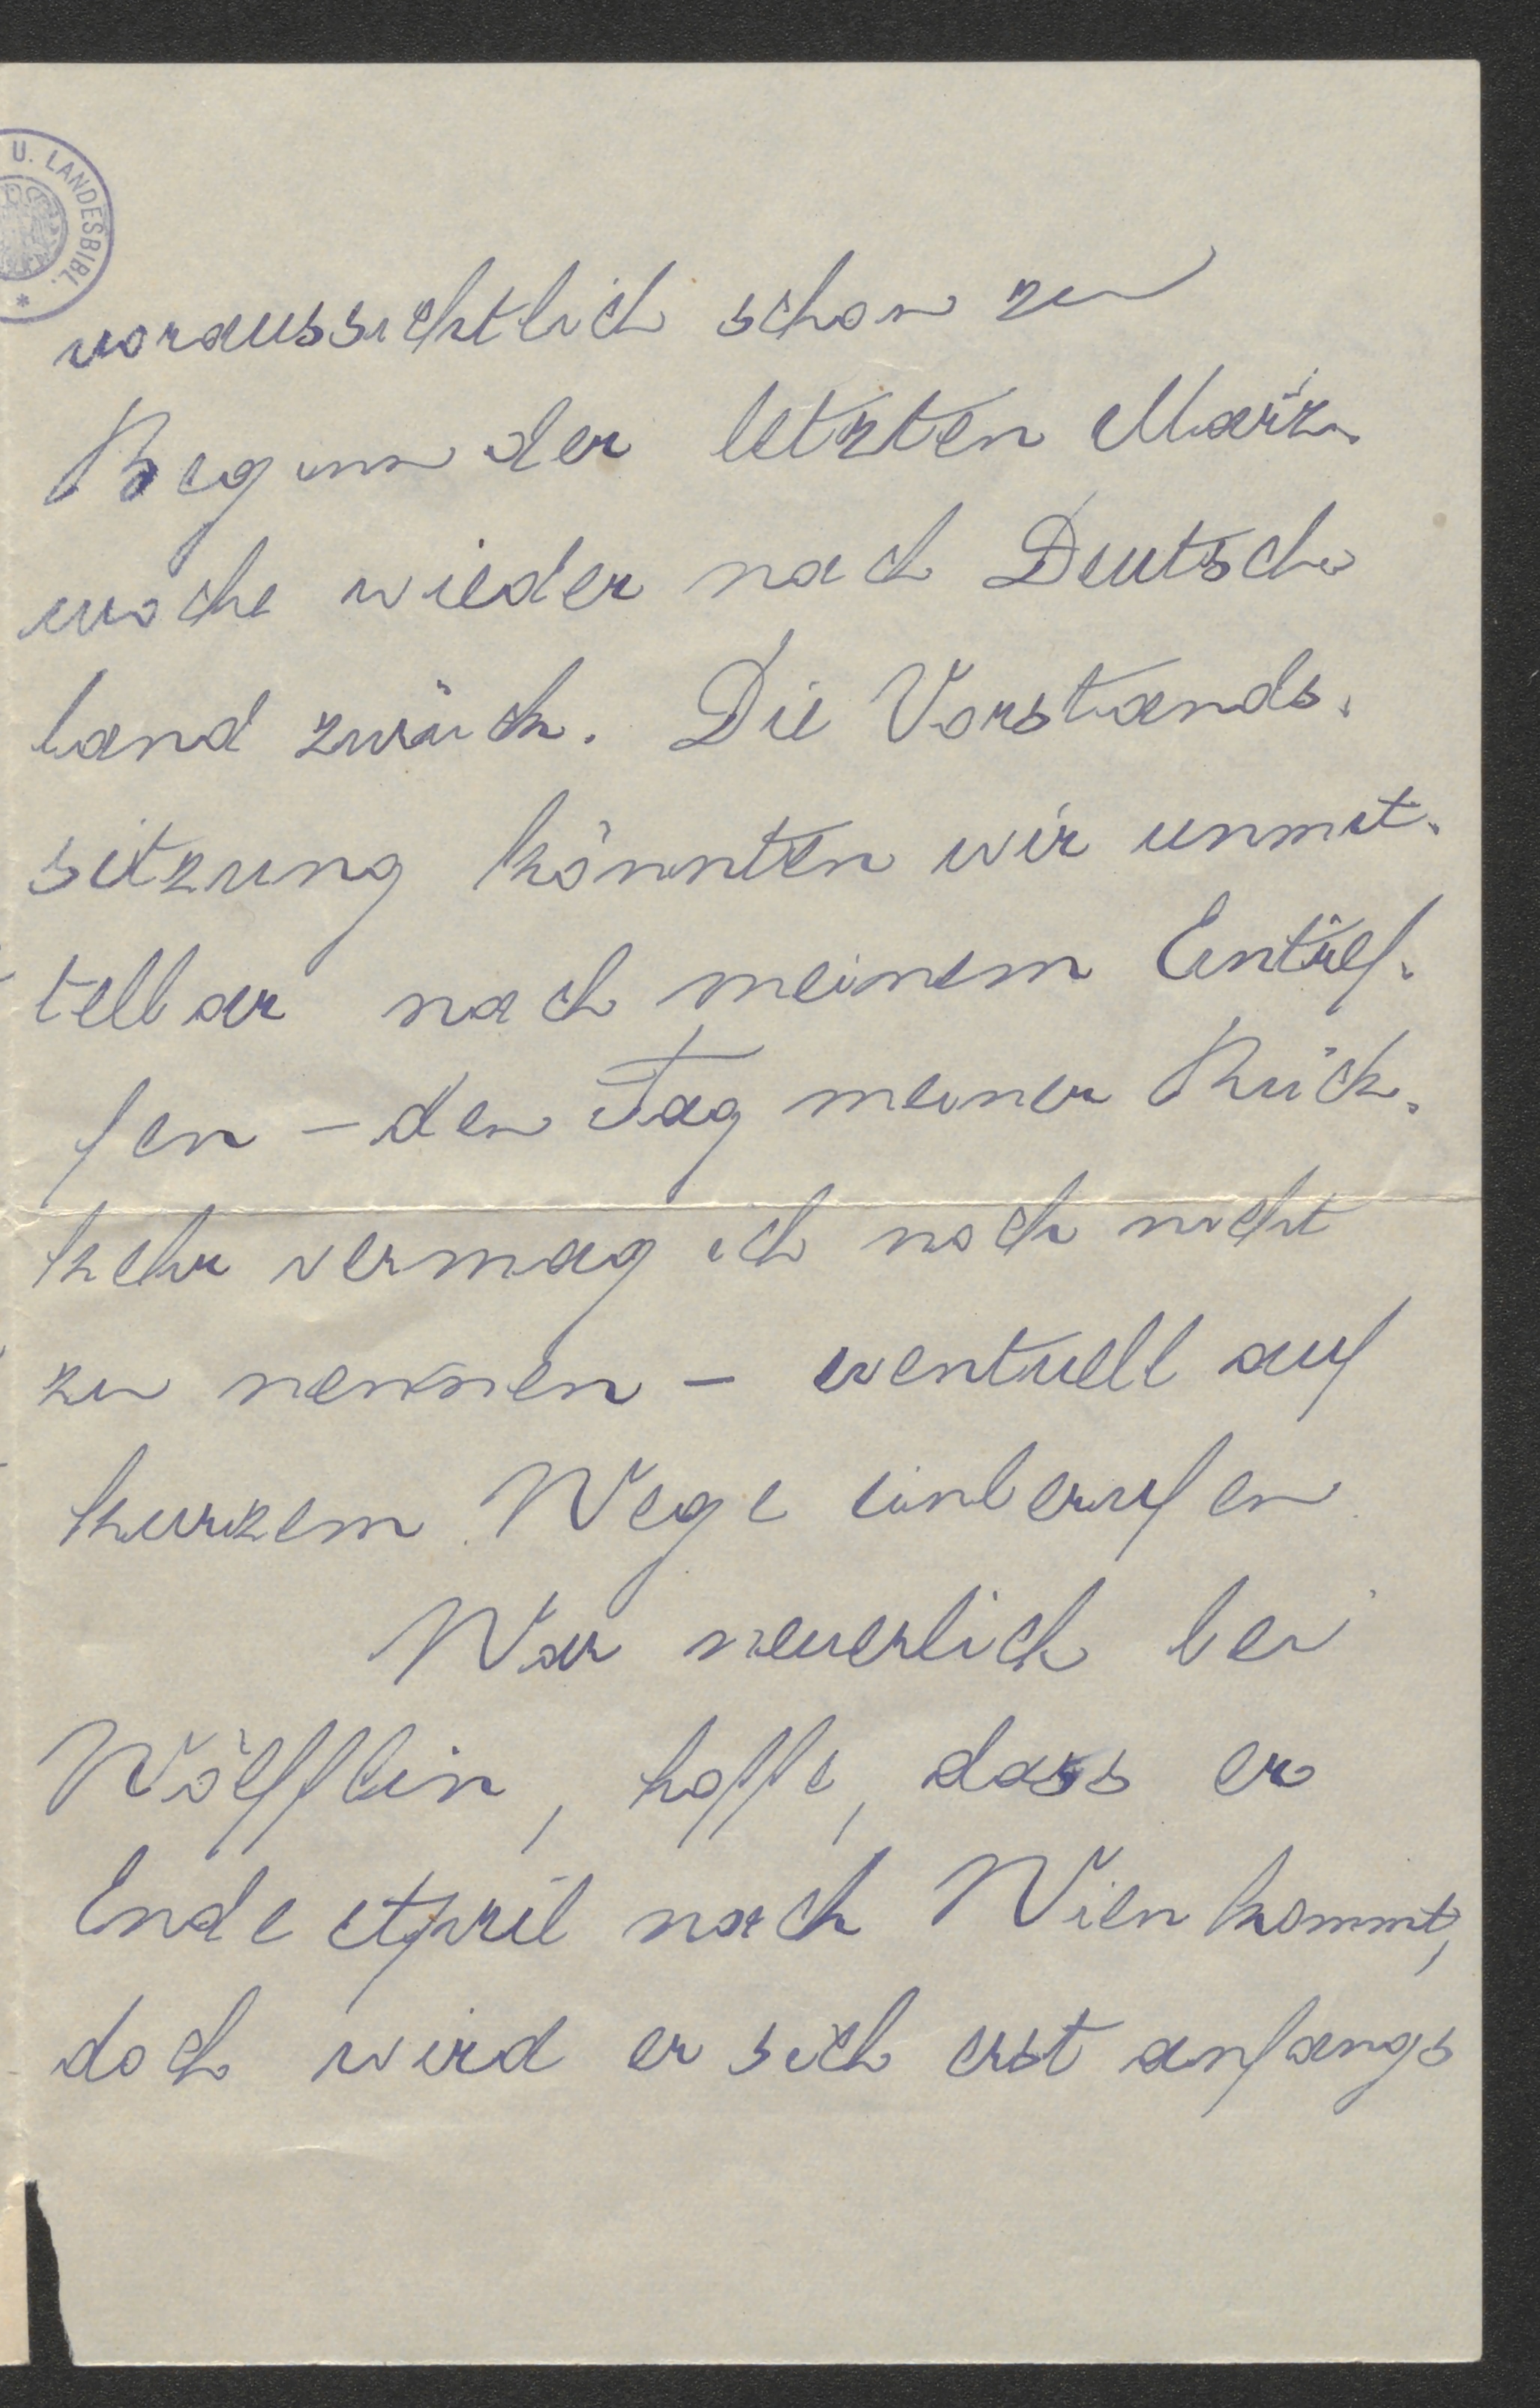 U. LANDESBIBL. *
voraussichtlich schon zu
Beginn der letzten März-
woche wieder nach Deutsch-
land zurück. Die Vorstands-
sitzung könnten wir unmit-
telbar nach meinem Eintref-
fen – den Tag meiner Rück-
kehr vermag ich noch nicht
zu nennen – eventuell auf
kurzem Wege einberufen
War neuerlich bei
Wölfflin, hoffe, dass er
Ende April nach Wien kommt,
doch wird er sich erst anfangs